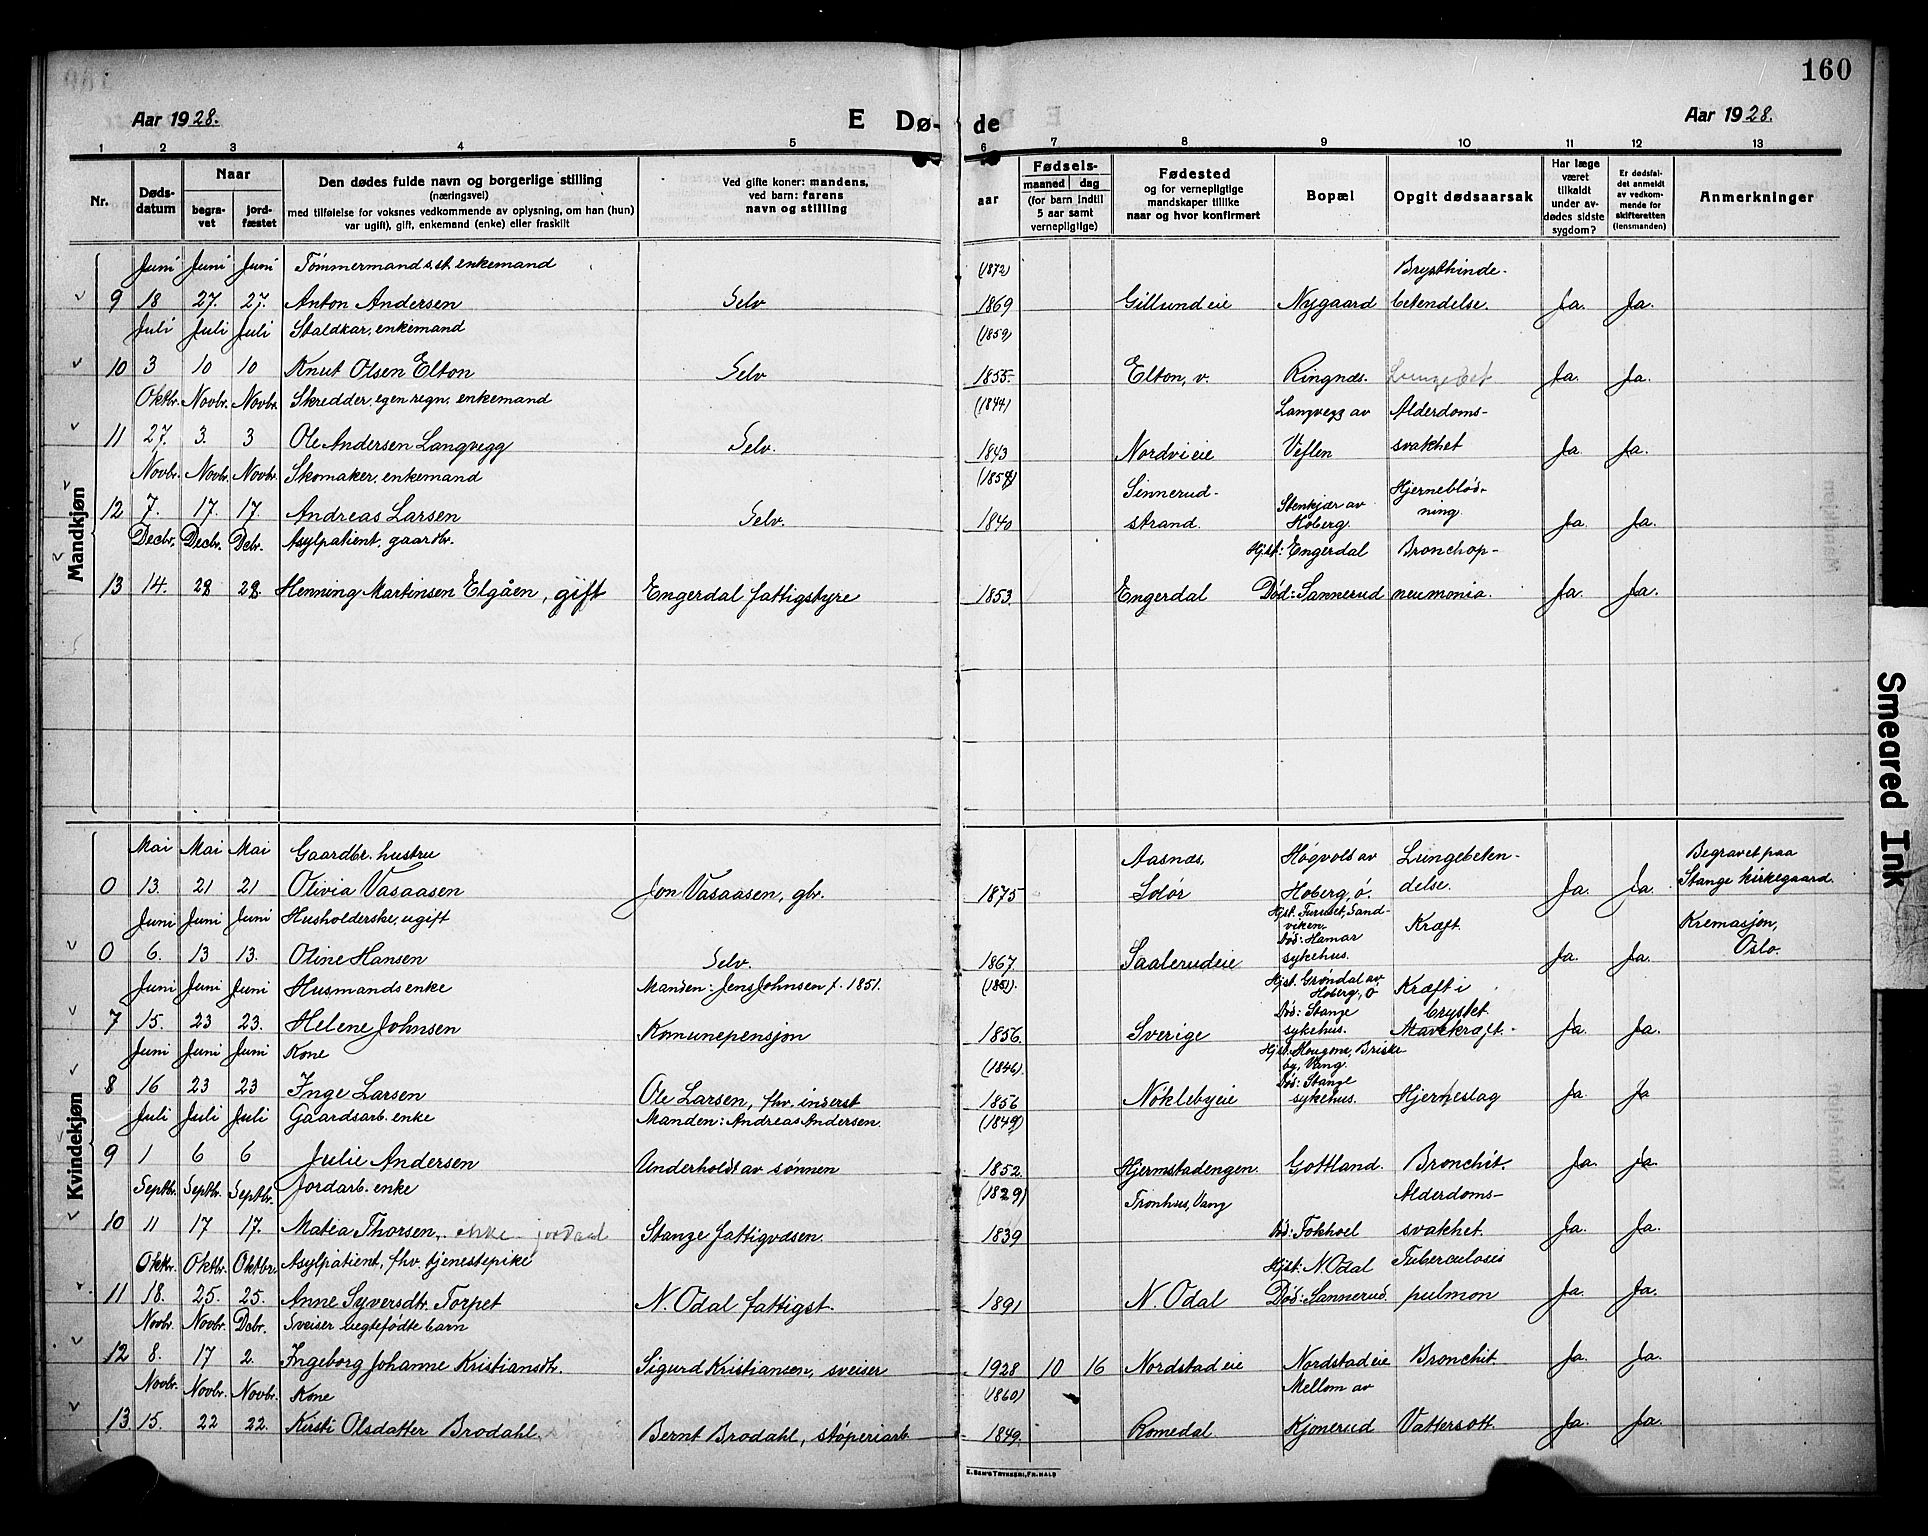 160
Aar 1928.
E Dø- de
Aar 1928.
1 2 3 4 5 6 7 8 9 10 11 12 13
Nr.
Døds-
datum
Naar
begra-
vet
jord-
fæstet
Den dødes fulde navn og borgerlige stilling
(næringsvei)
med tilføielse for voksnes vedkommende av oplysning, om han (hun)
var ugift), gift, enkemand (enke) eller fraskilt
Ved gifte koner: mandens,
ved barn: farens
navn og stilling
aar
Fødsels-
maaned dag
(for barn indtil
5 aar samt
vernepligtige)
Fødested
og for vernepligtige
mandskaper tillike
naar og hvor konfirmert
Bopæl
Opgit dødsaarsak
Har læge
været
tilkaldt
under av-
dødes sidste
sygdom?
Er dødsfal-
det anmeldt
av vedkom-
mende for
skifteretten
(lensmanden)
Anmerkninger
Mandkjøn
Juni Juni Juni Tømmermand s.st. enkemand (1872) Brysthinde-
9 18 27. 27. Anton Andersen Selv 1869 Gillundeie Nygaard betendelse. Ja. Ja.
Juli Juli Juli Staldkar, enkemand (1859)
10 3 10 10 Knut Olsen Elton Selv 1855. Elton, v. Ringnæs. Lungebet Ja. Ja.
Oktbr. Novbr. Novbr. Skredder, egen regn. enkemand (1844) Langvegg av Alderdoms-
11 27. 3. 3 Ole Andersen Langvegg Selv. 1843 Nordvieie Veflen svakhet Ja. Ja.
Novbr. Novbr. Novbr. Skomaker, enkemand (1854) Sinnerud- Stenkjær av Hjerneblød-
12 7. 17. 17. Andreas Larsen Selv. 1840 strand. Hoberg. ning. Ja. Ja.
Decbr. Decbr. Dcbr. Asylpatient, gaardbr. Hjst: Engerdal Bronchop-
13 14. 28 28. Henning Martinsen Elgåen, gift Engerdal fattigstyre 1853. Engerdal Død: Sannerud neumonia. Ja. Ja.
Kvindekjøn
Mai Mai Mai Gaardbr. hustru Aasnæs, Høgvold av Lungebeten- Begravet paa
0 13. 21 21 Olivia Vasaasen Jon Vasaasen, gbr. 1875 Solør Hoberg, ø. delse. Ja. Ja. Stange kirkegaard.
Juni Juni Juni Husholderske, ugift Hjst. Furuset, Sand-
viken. Kræft. Kremasjon,
Død: Hamar Oslo.
0 6. 13 13. Oline Hansen Selv. 1867. Saalerudeie sykehus. Ja. Ja.
Juni Juni Juni Husmandsenke Manden: Jens Johnsen f. 1851. (1851). Hjst. Grøndal av Kræft i
Hoberg, ø
Død: Stange brystet
7 15. 23 23. Helene Johnsen Komunepensjon 1856. Sverige sykehus. Mavekræft. Ja. Ja.
Juni Juni Juni Kone (1846). Hjst. Hougene, Briske-
by, Vang.
Død: Stange
8 16 23 23 Inge Larsen Ole Larsen, fhv. inderst 1856 Nøklebyeie sykehus. Hjerneslag Ja. Ja
Juli Juli Juli Gaardsarb. enke Manden: Andreas Andersen. (1849)
9 1 6 6 Julie Andersen Underholdt av sønnen 1852. Hjermstadengen. Gottland. Bronchit. Ja. Ja.
Septbr. Septbr. Septbr. Jordarb. enke (1829) Tronhus, Vang Alderdoms-
10 11 17 17. Matea Thorsen, enke jordarb Stange fattigvæsen. 1839 Død: Fokhoel svakhet. Ja. Ja.
Oktbr. Oktbr. Oktbr. Asylpatient, fhv. tjenestepike Hjst: N Odal Tuberculosis
11 18. 25. 25. Anne Syversdtr. Torpet N. Odal fattigst. 1891 N. Odal Død: Sannerud. pulmon Ja. Ja.
Novbr. Novbr. Dcbr. Sveiser ægtefødte barn
12 8. 17 2. Ingeborg Johanne Kristiansdtr. Sigurd Kristiansen, sveiser 1928 10 16 Nordstadeie Nordstadeie Bronchit. Ja. Ja.
Novbr. Novbr. Novbr. Kone (1860) Mellom av
13 15. 22 22. Kirsti Olsdatter Brodahl. Bernt Brodahl, støperiarb 1849. Romedal Kjonerud Vattersott. Ja. Ja.
E. SEM'S TRYKKERI, FR.HALD
Smeared Ink